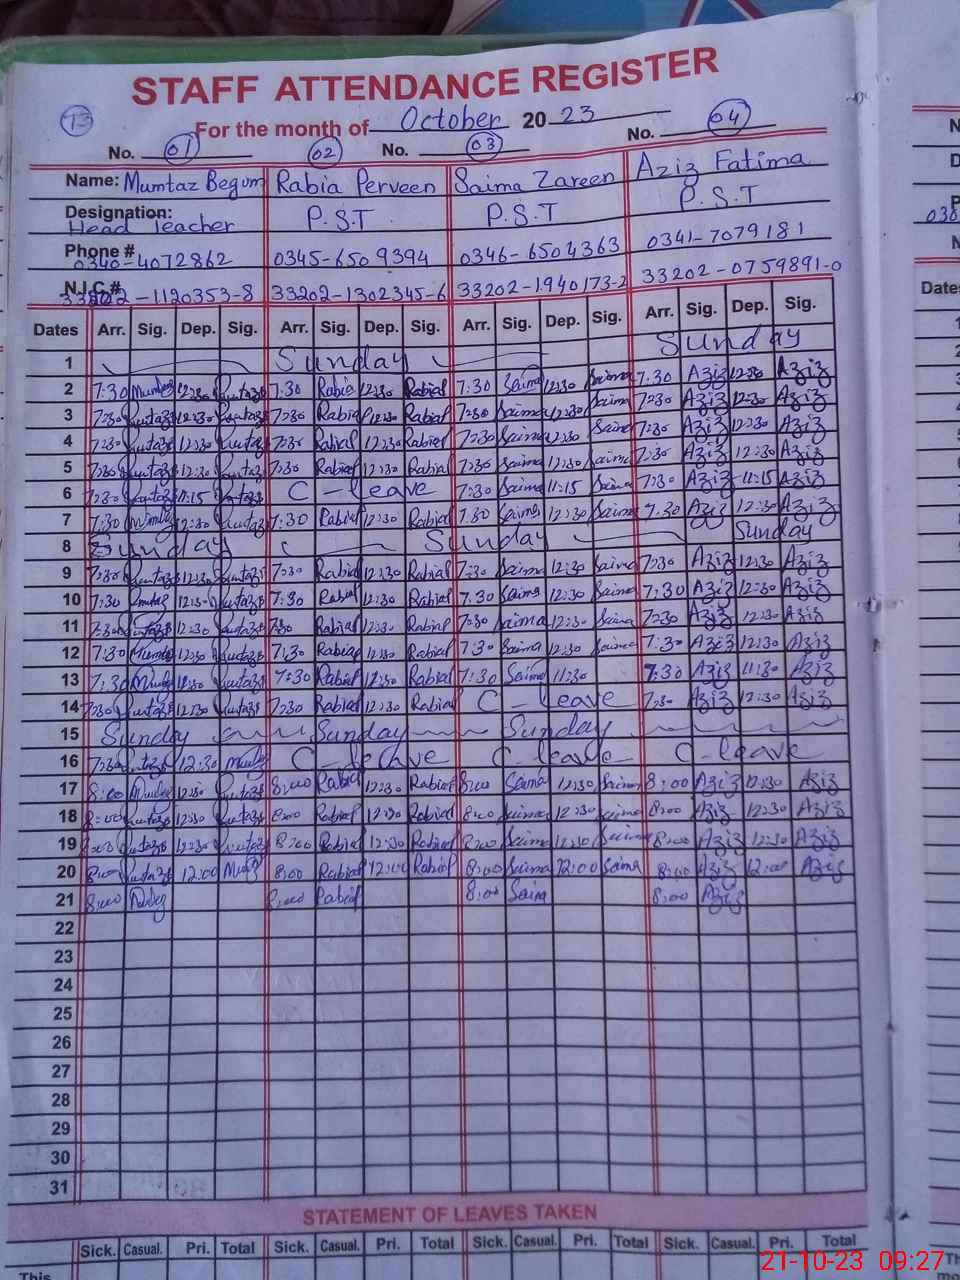 STAFF ATTENDANCE REGISTER
13 For the month of October 20 23
No. 01 02 No. 03 No. 04
Name: Mumtaz Begum Rabia Perveen Saima Zareen Aziz Fatima
Designation: Head Teacher P.S.T P.S.T P.S.T
Phone # 0340-4072862 0345-6509394 0346-6504363 0341-7079181
N.I.C.# -1120353-8 33202-1302345-6 33202-1940173-2 33202-0759891-0
Dates Arr. Sig. Dep. Sig. Arr. Sig. Dep. Sig. Arr. Sig. Dep. Sig. Arr. Sig. Dep. Sig.
1 Sunday Sunday
2 7:30 Mumtaz 12:30 Mumtaz 7:30 Rabia 12:30 Rabia 7:30 Saima 12:30 Saima 7:30 Aziz 12:30 Aziz
3 7:30 Mumtaz 12:30 Mumtaz 7:30 Rabia 12:30 Rabia 7:30 Saima 12:30 Saima 7:30 Aziz 12:30 Aziz
4 7:30 Mumtaz 12:30 Mumtaz 7:30 Rabia 12:30 Rabia 7:30 Saima 12:30 Saima 7:30 Aziz 12:30 Aziz
5 7:30 Mumtaz 12:30 Mumtaz 7:30 Rabia 12:30 Rabia 7:30 Saima 12:30 Saima 7:30 Aziz 12:30 Aziz
6 7:30 Mumtaz 11:15 Mumtaz C-leave 7:30 Saima 11:15 Saima 7:30 Aziz 11:15 Aziz
7 7:30 Mumtaz 12:30 Mumtaz 7:30 Rabia 12:30 Rabia 7:30 Saima 12:30 Saima 7:30 Aziz 12:30 Aziz
8 Sunday Sunday Sunday
9 7:30 Mumtaz 12:30 Mumtaz 7:30 Rabia 12:30 Rabia 7:30 Saima 12:30 Saima 7:30 Aziz 12:30 Aziz
10 7:30 Mumtaz 12:30 Mumtaz 7:30 Rabia 12:30 Rabia 7:30 Saima 12:30 Saima 7:30 Aziz 12:30 Aziz
11 7:30 Mumtaz 12:30 Mumtaz 7:30 Rabia 12:30 Rabia 7:30 Saima 12:30 Saima 7:30 Aziz 12:30 Aziz
12 7:30 Mumtaz 12:30 Mumtaz 7:30 Rabia 12:30 Rabia 7:30 Saima 12:30 Saima 7:30 Aziz 12:30 Aziz
13 7:30 Mumtaz 12:30 Mumtaz 7:30 Rabia 12:30 Rabia 7:30 Saima 11:30 7:30 Aziz 11:30 Aziz
14 7:30 Mumtaz 12:30 Mumtaz 7:30 Rabia 12:30 Rabia C-leave 7:30 Aziz 12:30 Aziz
15 Sunday Sunday Sunday
16 7:30 Mumtaz 12:30 Mumtaz C-leave C-leave C-leave
17 8:00 Mumtaz 12:30 Mumtaz 8:00 Rabia 12:30 Rabia 8:00 Saima 12:30 Saima 8:00 Aziz 12:30 Aziz
18 8:00 Mumtaz 12:30 Mumtaz 8:00 Rabia 12:30 Rabia 8:00 Saima 12:30 Saima 8:00 Aziz 12:30 Aziz
19 8:00 Mumtaz 12:30 Mumtaz 8:00 Rabia 12:30 Rabia 8:00 Saima 12:30 Saima 8:00 Aziz 12:30 Aziz
20 8:00 Mumtaz 12:00 Mumtaz 8:00 Rabia 12:00 Rabia 8:00 Saima 12:00 Saima 8:00 Aziz 12:00 Aziz
21 8:00 8:00 Rabia 8:00 Saima 8:00 Aziz
22
23
24
25
26
27
28
29
30
31
STATEMENT OF LEAVES TAKEN
Sick. Casual. Pri. Total Sick. Casual. Pri. Total Sick. Casual. Pri. Total Sick. Casual. Pri. Total
This
21-10-23 09:27